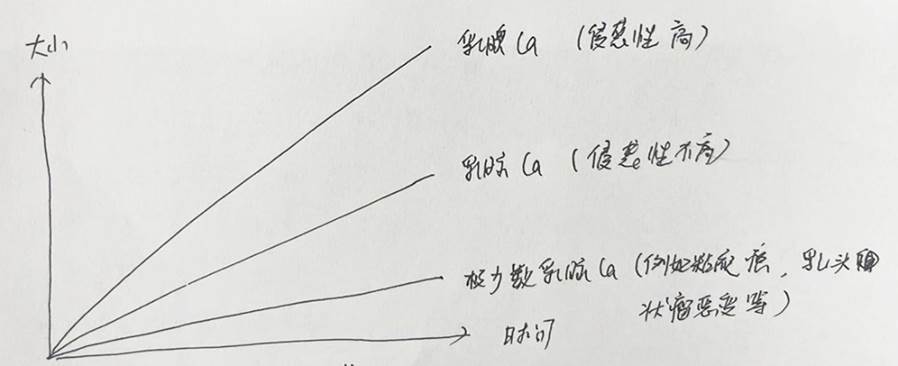 大小
乳腺Ca（侵袭性高）
乳腺Ca（侵袭性不高）
极少数乳腺Ca（例如粘液癌，乳头
状瘤恶变等）
时间